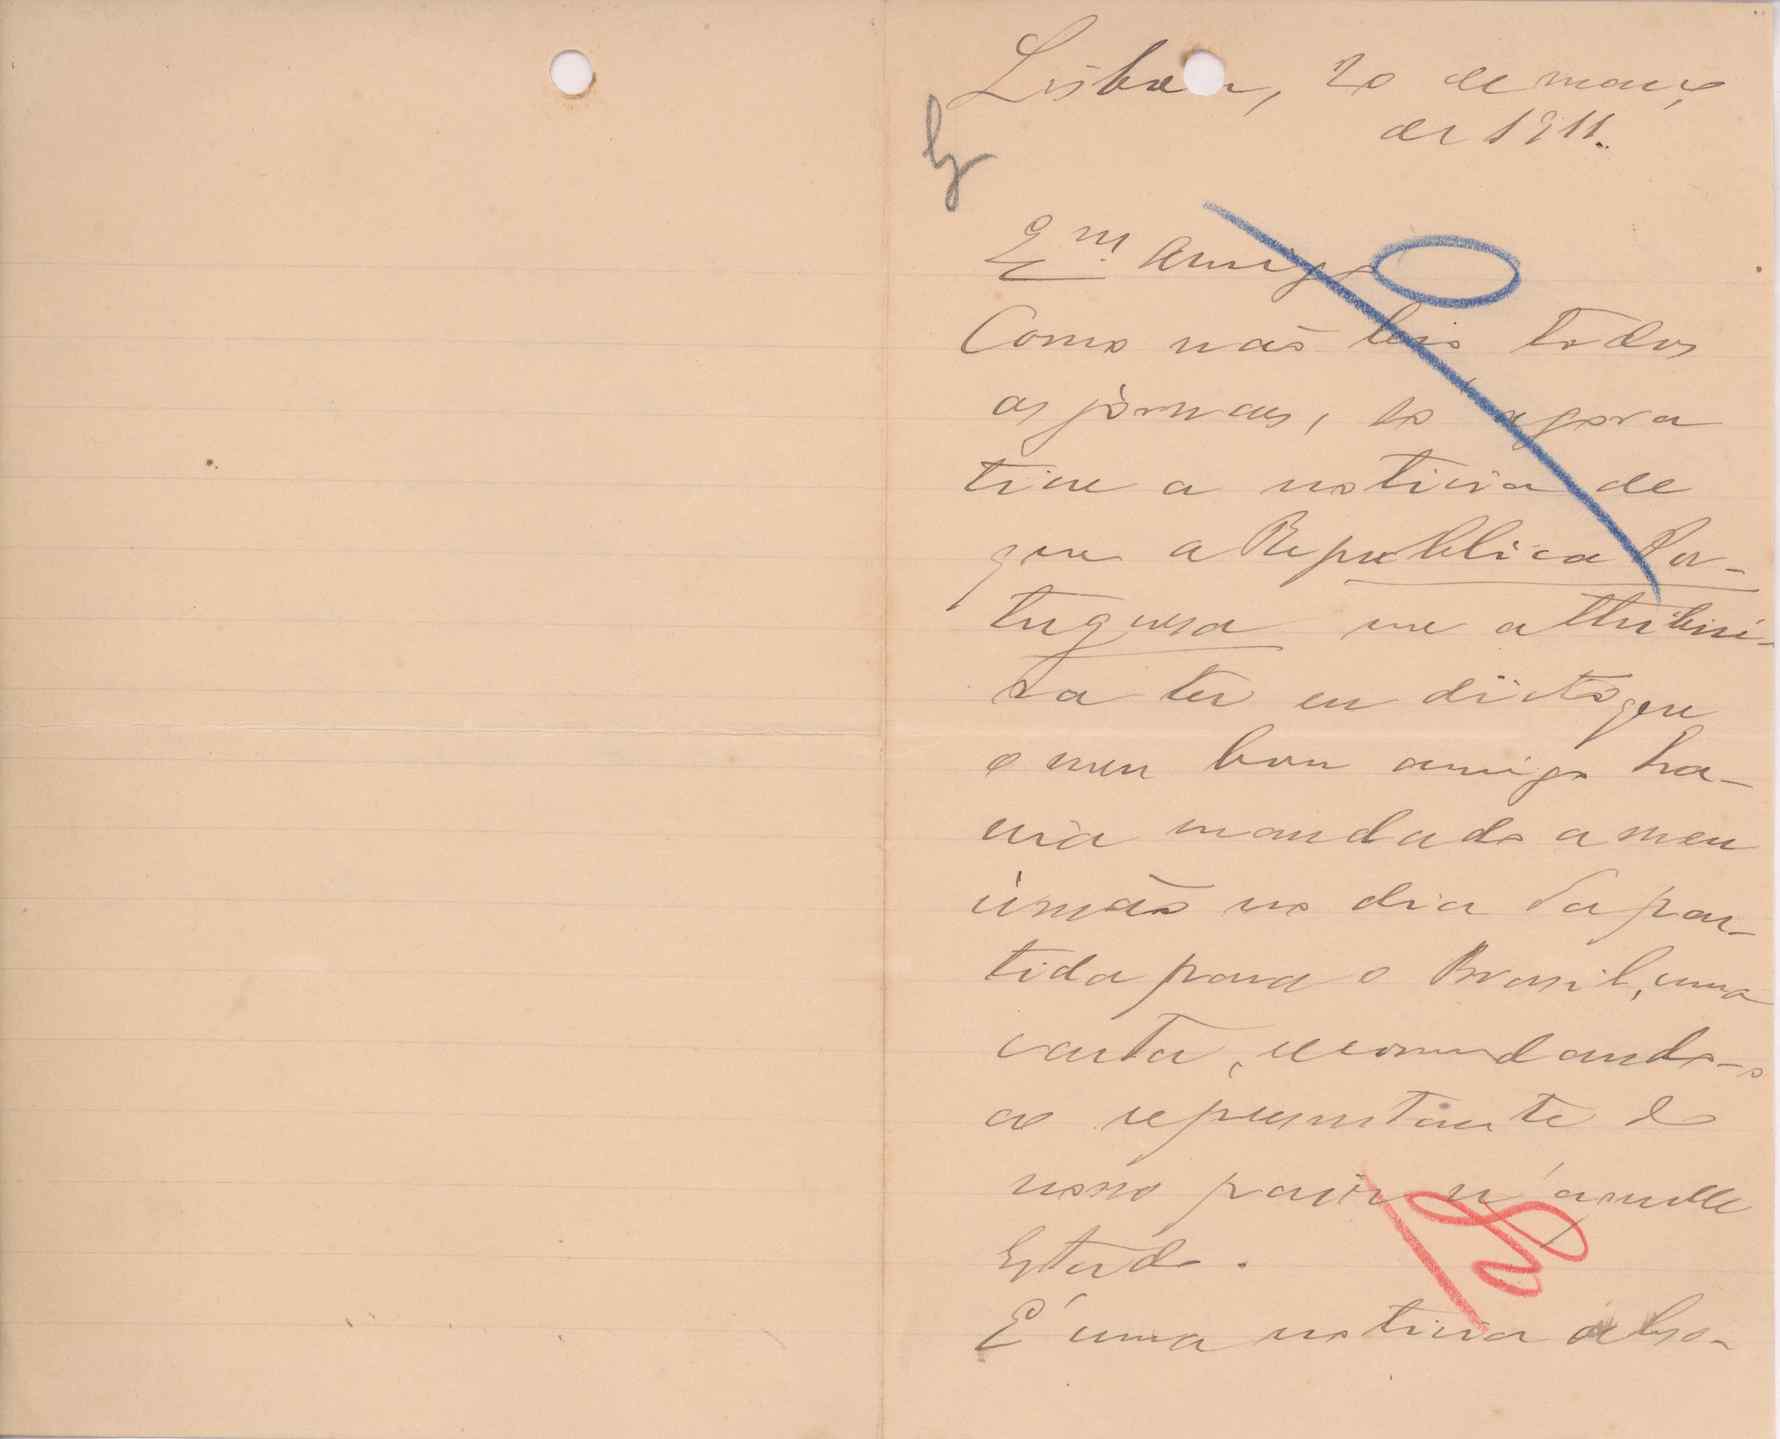 Lisboa, 20 de março
de 1911.
Ex.m. Amigo
Como não leio todos
os jornaes, só agora
tive a noticia de
que a Republica Por-
tuguesa me attribui-
ra ter eu dicto que
o meu bom amigo ha-
via mandado a meu
irmão no dia da par-
tida para o Brasil, uma
carta, recomendando-o
ao representante do
nosso paiz n'aquelle
Estado.
É uma noticia abso-